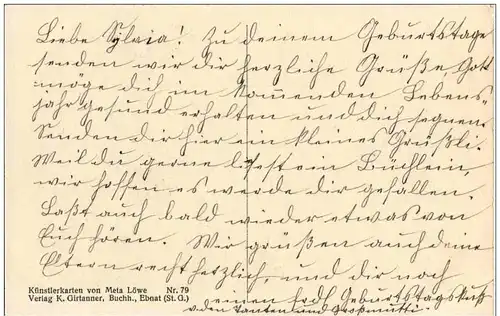 Liebe Sylvia! Zu deinem Geburtstage
senden wir dir herzliche Grüße, Gott
möge dich im kommenden Lebens-
jahr gesund erhalten und dich segnen.
Senden dir hier ein kleines Grüßli.
Weil du gerne liesest ein Büchlein,
wir hoffen es werde dir gefallen.
Laßt auch bald wieder etwas von
Euch hören. Wir grüßen auch deine
Eltern recht herzlich, und dir noch
einen Geburtstagskuß
v. den Tanten und Großmutti.
Künstlerkarten von Meta Löwe Nr. 79
Verlag K. Girtanner, Buchh., Ebnat (St. G.)